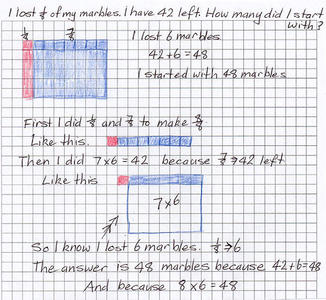 I lost ⅛ of my marbles. I have 42 left. How many did I start with?
⅛ ⅞
I lost 6 marbles
42+6=48
I started with 48 marbles
First I did ⅛ and ⅞ to make 8/8
Like this.
Then I did 7×6=42 because ⅞→42 left
Like this
7×6
So I know I lost 6 marbles. ⅛→6
The answer is 48 marbles because 42+6=48
And because 8×6=48